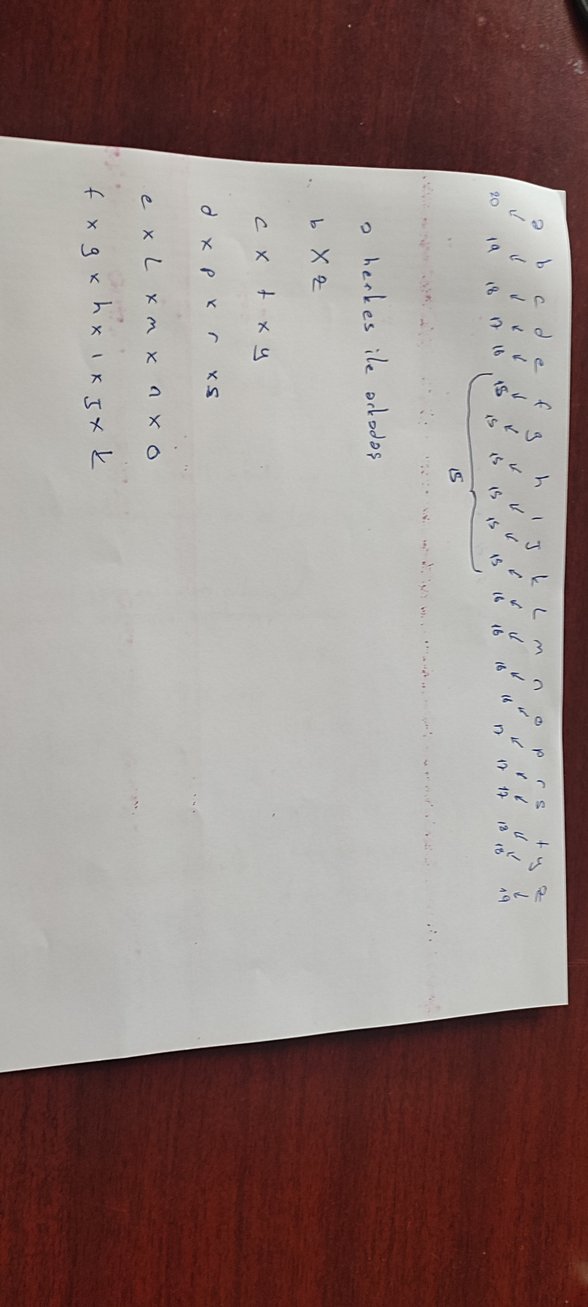 a b c d e f g h ı j k L m n o p r s t y z
20 19 18 17 16 15 15 15 15 15 15 16 16 16 16 17 17 17 18 18 19
15
a herkes ile arkadaş
b x z
c x t x y
d x p x r x s
e x L x m x n x o
f x g x h x ı x j x k